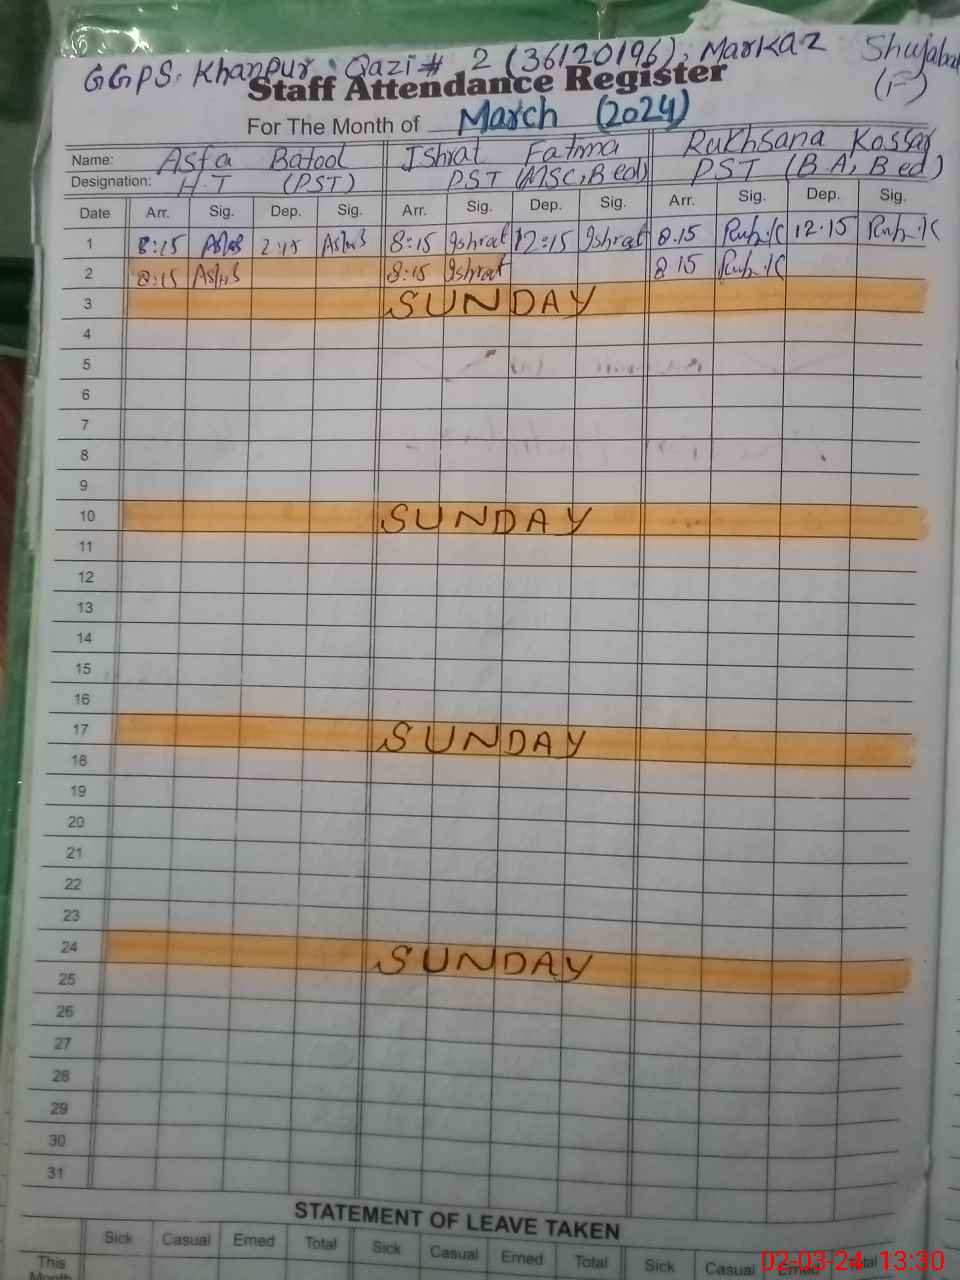 GGPS, Khanpur Qazi # 2 (36120196), Markaz Shujabad (F)
Staff Attendance Register
For The Month of March (2024)
Name: Asfa Batool Ishrat Fatima Rukhsana Kossar
Designation: H.T (PST) PST (MSC, B ed) PST (B A, B ed)
Date Arr. Sig. Dep. Sig. Arr. Sig. Dep. Sig. Arr. Sig. Dep. Sig.
1 8:15 2:15 8:15 Ishrat 12:15 Ishrat 8.15 Ruh.K 12.15 Ruh.K
2 8:15 8:15 Ishrat 8 15 Ruh.K
3 SUNDAY
4
5
6
7
8
9
10 SUNDAY
11
12
13
14
15
16
17 SUNDAY
18
19
20
21
22
23
24 SUNDAY
25
26
27
28
29
30
31
STATEMENT OF LEAVE TAKEN
Sick Casual Erned Total Sick Casual Erned Total Sick Casual Erned Total
This
Month
02-03-24 13:30